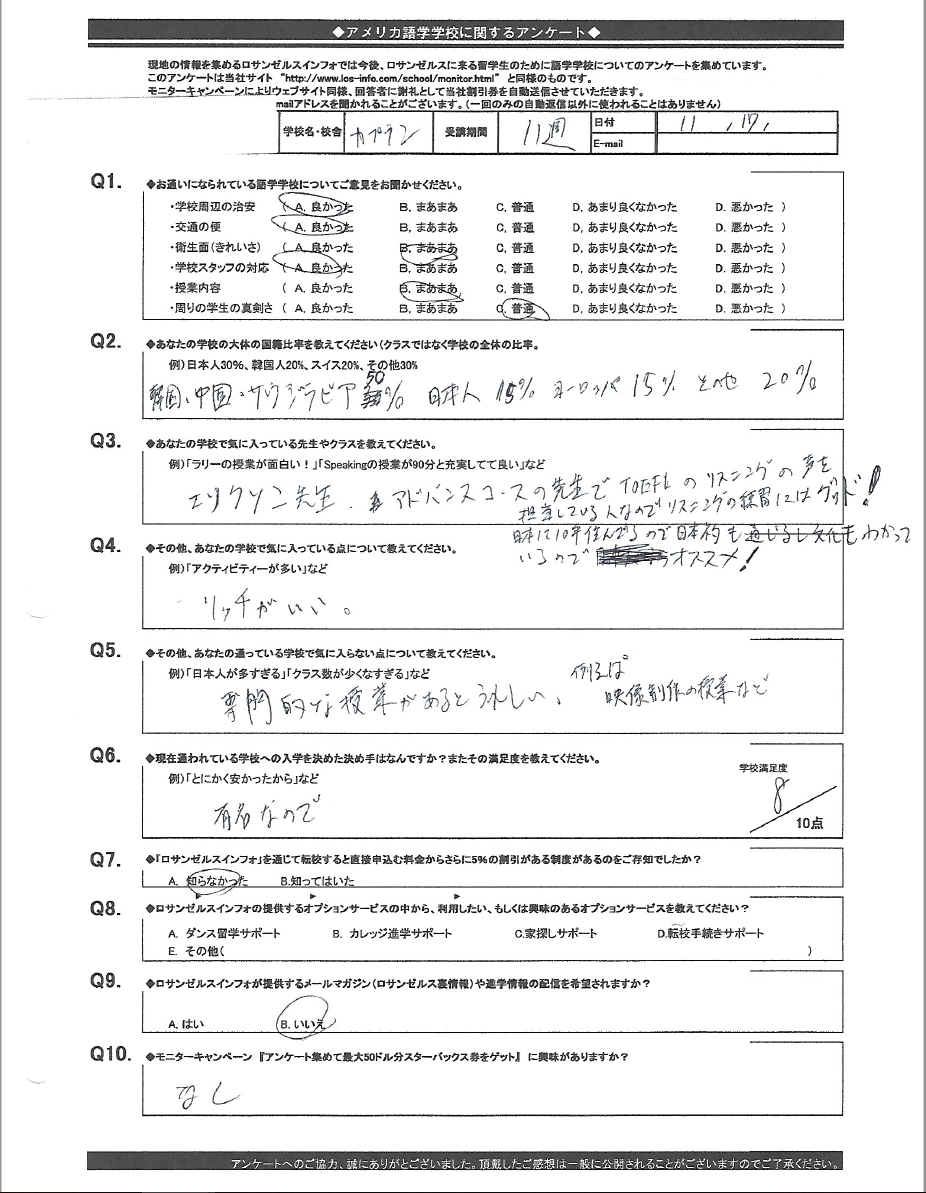 ◆アメリカ語学学校に関するアンケート◆
現地の情報を集めるロサンゼルスインフォでは今後、ロサンゼルスに来る留学生のために語学学校についてのアンケートを集めています。
このアンケートは当社サイト "http://www.los-info.com/school/monitor.html" と同様のものです。
モニターキャンペーンによりウェブサイト同様、回答者に謝礼として当社割引券を自動送信させていただきます。
mailアドレスを聞かれることがございます。(一回のみの自動返信以外に使われることはありません)
学校名・校舎 カプラン 受講期間 11週 日付 11 , 17,
E-mail
Q1. ◆お通いになられている語学学校についてご意見をお聞かせください。
・学校周辺の治安 ( A. 良かった B. まあまあ C. 普通 D. あまり良くなかった D. 悪かった )
・交通の便 ( A. 良かった B. まあまあ C. 普通 D. あまり良くなかった D. 悪かった )
・衛生面(きれいさ) ( A. 良かった B. まあまあ C. 普通 D. あまり良くなかった D. 悪かった )
・学校スタッフの対応 ( A. 良かった B. まあまあ C. 普通 D. あまり良くなかった D. 悪かった )
・授業内容 ( A. 良かった B. まあまあ C. 普通 D. あまり良くなかった D. 悪かった )
・周りの学生の真剣さ ( A. 良かった B. まあまあ C. 普通 D. あまり良くなかった D. 悪かった )
Q2. ◆あなたの学校の大体の国籍比率を教えてください(クラスではなく学校の全体の比率。
例)日本人30%、韓国人20%、スイス20%、その他30%
韓国、中国・サウジラビア 50% 日本人 15% ヨーロッパ 15% その他 20%
Q3. ◆あなたの学校で気に入っている先生やクラスを教えてください。
例)「ラリーの授業が面白い!」「Speakingの授業が90分と充実してて良い」など
エリクソン先生. アドバンスコースの先生でTOEFLのリスニングの声を
担当している人なのでリスニングの練習にはグッド!
日本に10年住んでるので日本語も通じるし文化もわかって
いるのでオススメ!
Q4. ◆その他、あなたの学校で気に入っている点について教えてください。
例)「アクティビティーが多い」など
リッチがいい。
Q5. ◆その他、あなたの通っている学校で気に入らない点について教えてください。
例)「日本人が多すぎる」「クラス数が少くなすぎる」など
専門的な授業があるとうれしい、例えば
映像制作の授業など
Q6. ◆現在通われている学校への入学を決めた決め手はなんですか?またその満足度を教えてください。
例)「とにかく安かったから」など
学校満足度
有名なので
8
10点
Q7. ◆「ロサンゼルスインフォ」を通じて転校すると直接申込む料金からさらに5%の割引がある制度があるのをご存知でしたか?
A. 知らなかった B.知ってはいた
Q8. ◆ロサンゼルスインフォの提供するオプションサービスの中から、利用したい、もしくは興味のあるオプションサービスを教えてください?
A. ダンス留学サポート B. カレッジ進学サポート C.家探しサポート D.転校手続きサポート
E. その他( )
Q9. ◆ロサンゼルスインフォが提供するメールマガジン(ロサンゼルス裏情報)や進学情報の配信を希望されますか?
A. はい B. いいえ
Q10. ◆モニターキャンペーン 『アンケート集めて最大50ドル分スターバックス券をゲット』 に興味がありますか?
なし
アンケートへのご協力、誠にありがとございました。頂戴したご感想は一般に公開されることがございますのでご了承ください。